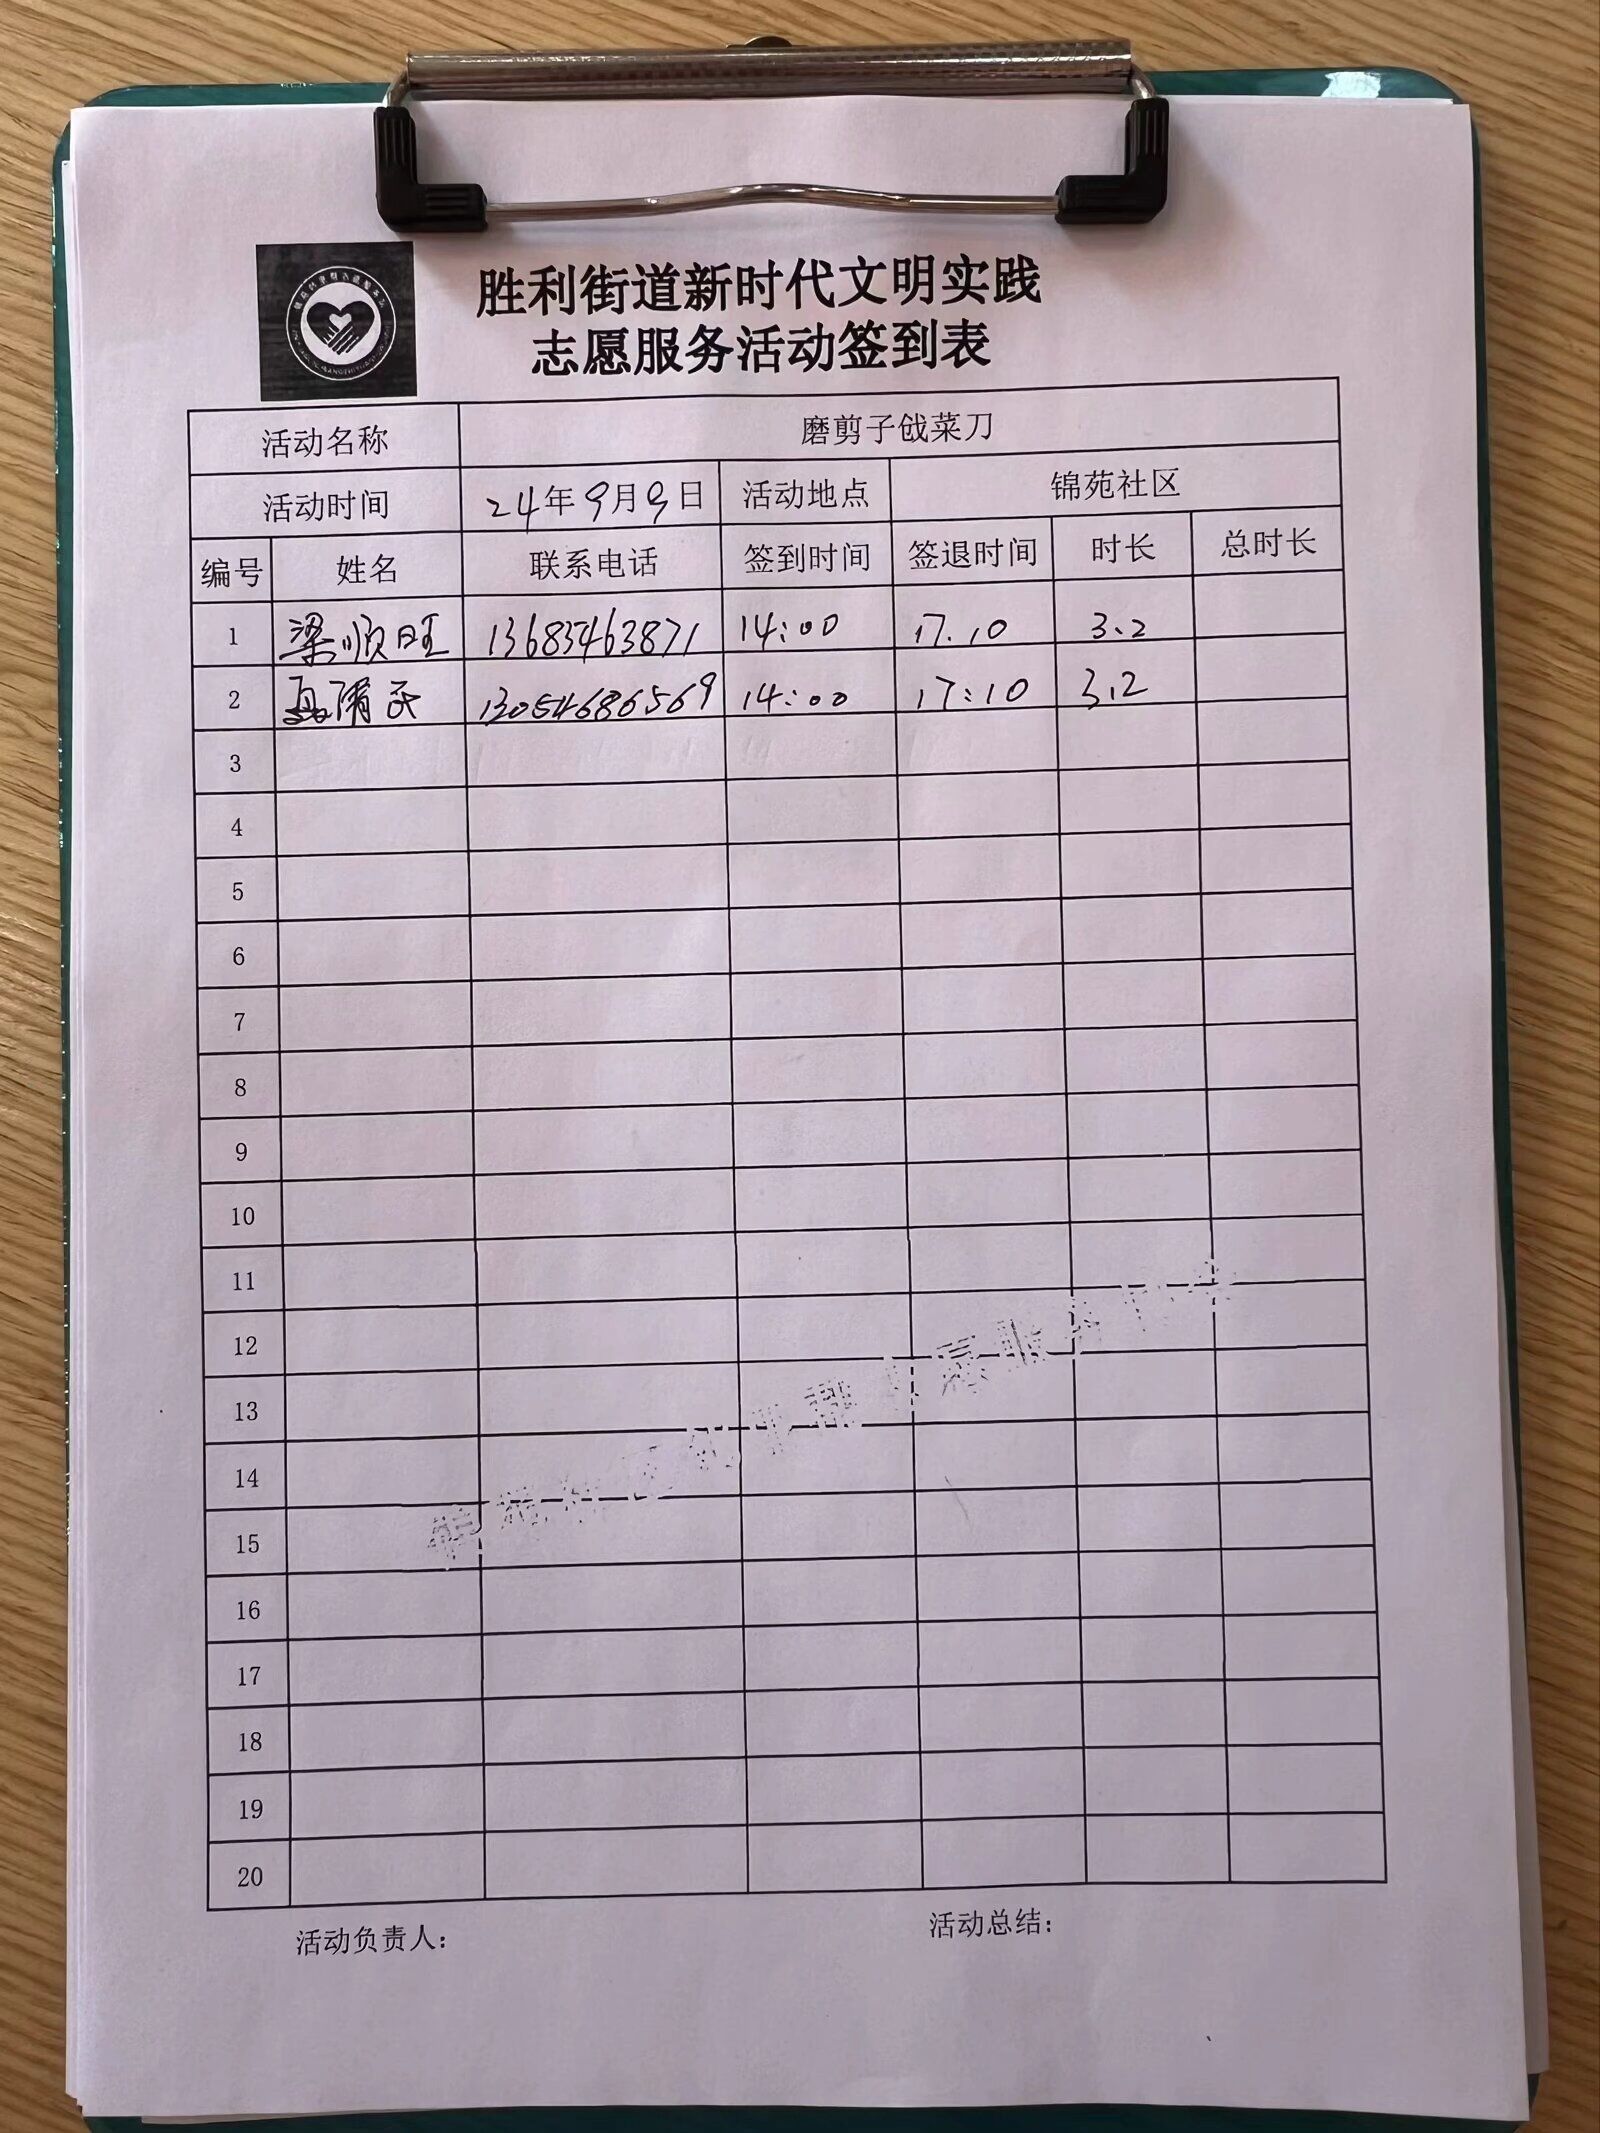 胜利街道新时代文明实践
志愿服务活动签到表
活动名称 磨剪子戗菜刀
活动时间 24年9月9日 活动地点 锦苑社区
编号 姓名 联系电话 签到时间 签退时间 时长 总时长
1 梁顺旺 13685463871 14:00 17.10 3.2
2 13054686569 14:00 17:10 3.2
3
4
5
6
7
8
9
10
11
12
13
14
15
16
17
18
19
20
活动负责人: 活动总结: